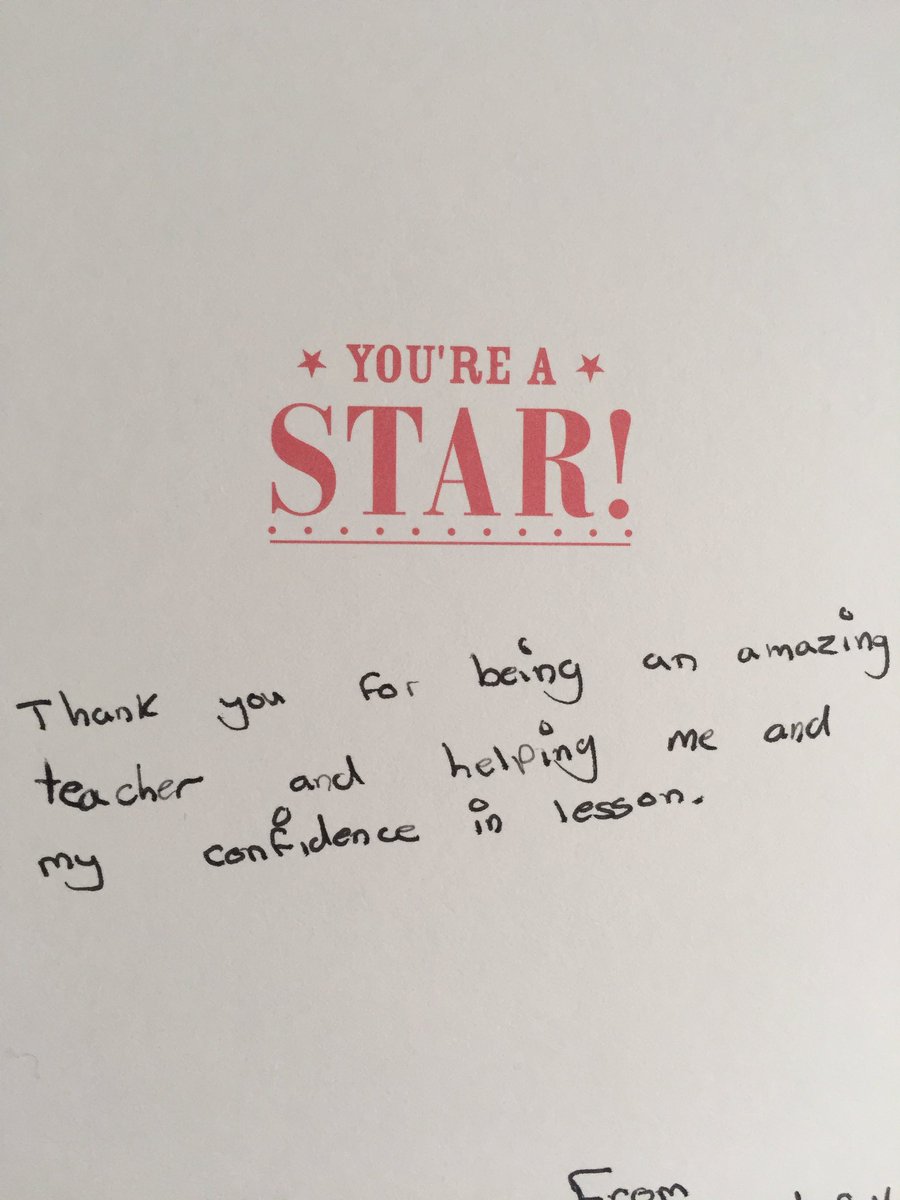 YOU'RE A
STAR!
Thank you for being an amazing
teacher and helping me and
my confidence in lesson.
From